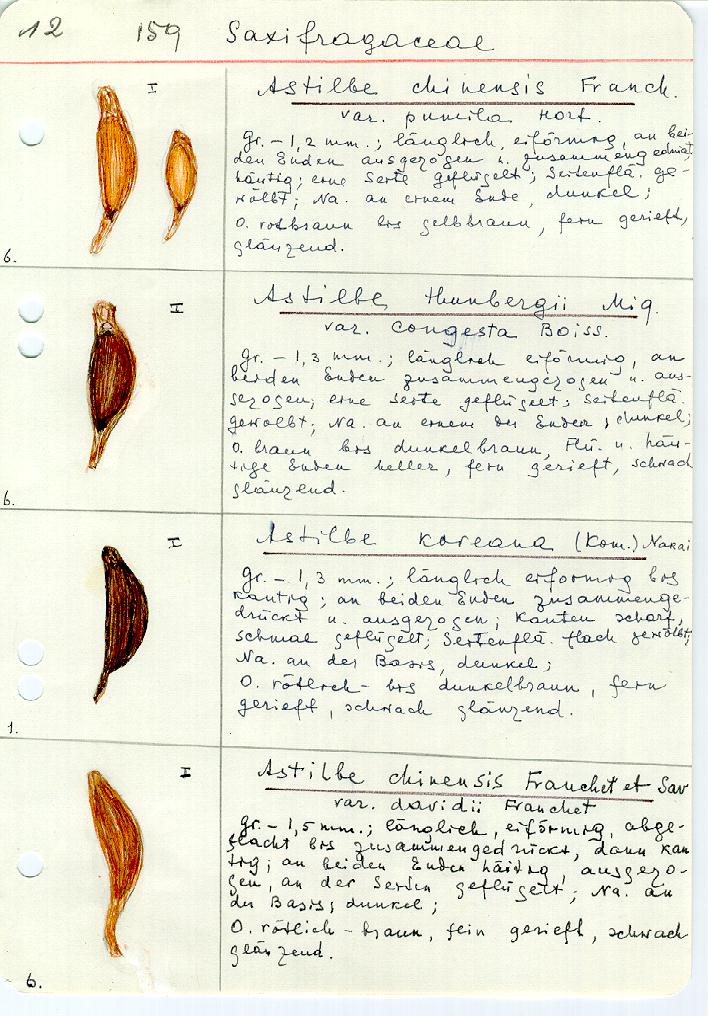 12 159 Saxifragaceae
I
Astilbe chinensis Franch.
var. pumila Hort.
Gr. – 1,2 mm.; länglich, eiförmig, an bei-
den Enden ausgezogen u.
häutig; eine Seite geflügelt; Seitenflä. ge-
wölbt; Na. an einem Ende, dunkel;
O. rotbraun bis gelbbraun, fein gerieft,
glänzend.
6.
II
Astilbe thunbergii Miq.
var. congesta Boiss.
Gr. – 1,3 mm.; länglich eiförmig, an
beiden Enden zusammengezogen u. aus-
gezogen; eine Seite geflügelt; Seitenflä.
gewölbt; Na. an einem der Enden, dunkel;
O. braun bis dunkelbraun, Flü. u. häu-
tige Enden heller, fein gerieft, schwach
glänzend.
6.
I
Astilbe koreana (Kom.) Nakai
Gr. – 1,3 mm.; länglich eiförmig bis
kantig; an beiden Enden zusammenge-
drückt u. ausgezogen; Kanten scharf,
schmal geflügelt; Seitenflä. flach gewölbt;
Na. an der Basis, dunkel;
O. rötlich- bis dunkelbraun, fein
gerieft, schwach glänzend.
1.
I
Astilbe chinensis Franchet et Sav
var. davidii Franchet
Gr. – 1,5 mm.; länglich, eiförmig, abge-
flacht bis zusammengedrückt, dann kan
tig; an beiden Enden häutig, ausgezo-
gen, an der Seiten geflügelt; Na. an
der Basis; dunkel;
O. rötlich-braun, fein gerieft, schwach
glänzend.
6.